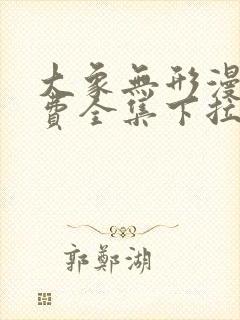 大象無形漫
費全集下拉
郭鄭湖